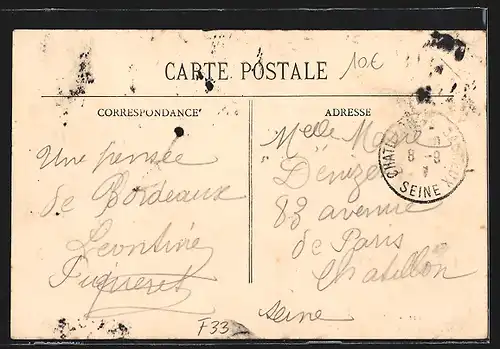 CARTE POSTALE
10€
CORRESPONDANCE
ADRESSE
Une pensée
de Bordeaux
Léontine
Melle Marie
Denizet
83 avenue
de Paris
Chatillon
Seine
CHATILLON
8 - 9
SEINE
F33